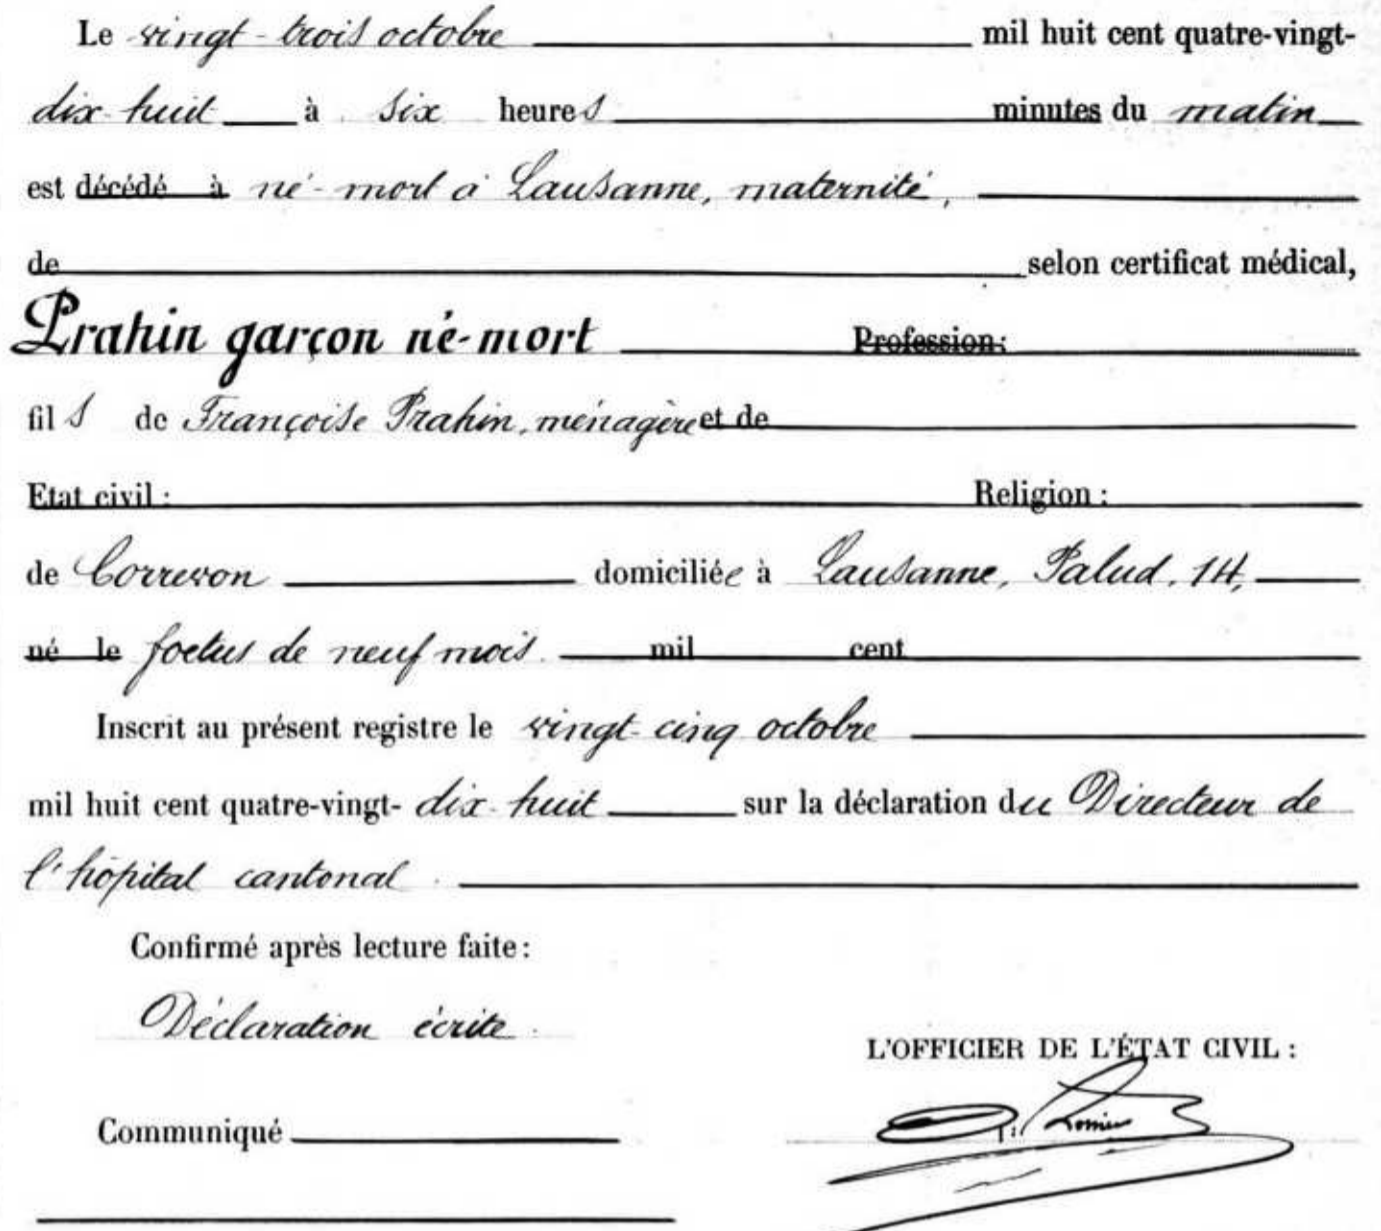 Le vingt-trois octobre mil huit cent quatre-vingt-
dix-huit à six heures minutes du matin
est décédé à né-mort à Lausanne, maternité,
de selon certificat médical,
Prahin garçon né-mort Profession:
fils de Françoise Prahin, ménagère et de
Etat civil : Religion :
de Correvon domiciliée à Lausanne, Palud, 14,
né le foetus de neuf mois. mil cent
Inscrit au présent registre le vingt-cinq octobre
mil huit cent quatre-vingt- dix-huit sur la déclaration du Directeur de
l'hôpital cantonal.
Confirmé après lecture faite :
Déclaration écrite.
L'OFFICIER DE L'ÉTAT CIVIL :
Communiqué